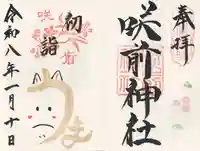 奉拝
咲前神社
初詣
うま
令和八年一月十日